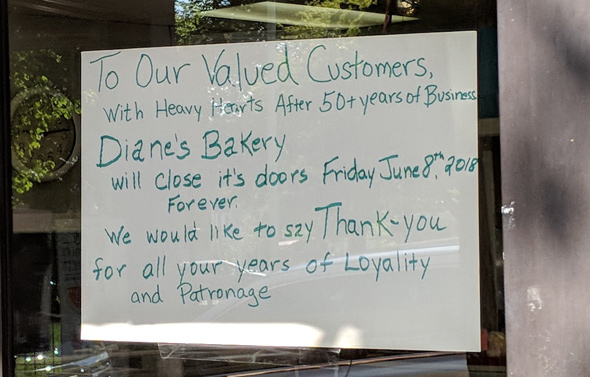 To Our Valued Customers,
With Heavy Hearts After 50+ years of Business
Diane's Bakery
will close it's doors Friday June 8th, 2018
Forever.
We would like to say Thank-you
for all your years of Loyality
and Patronage